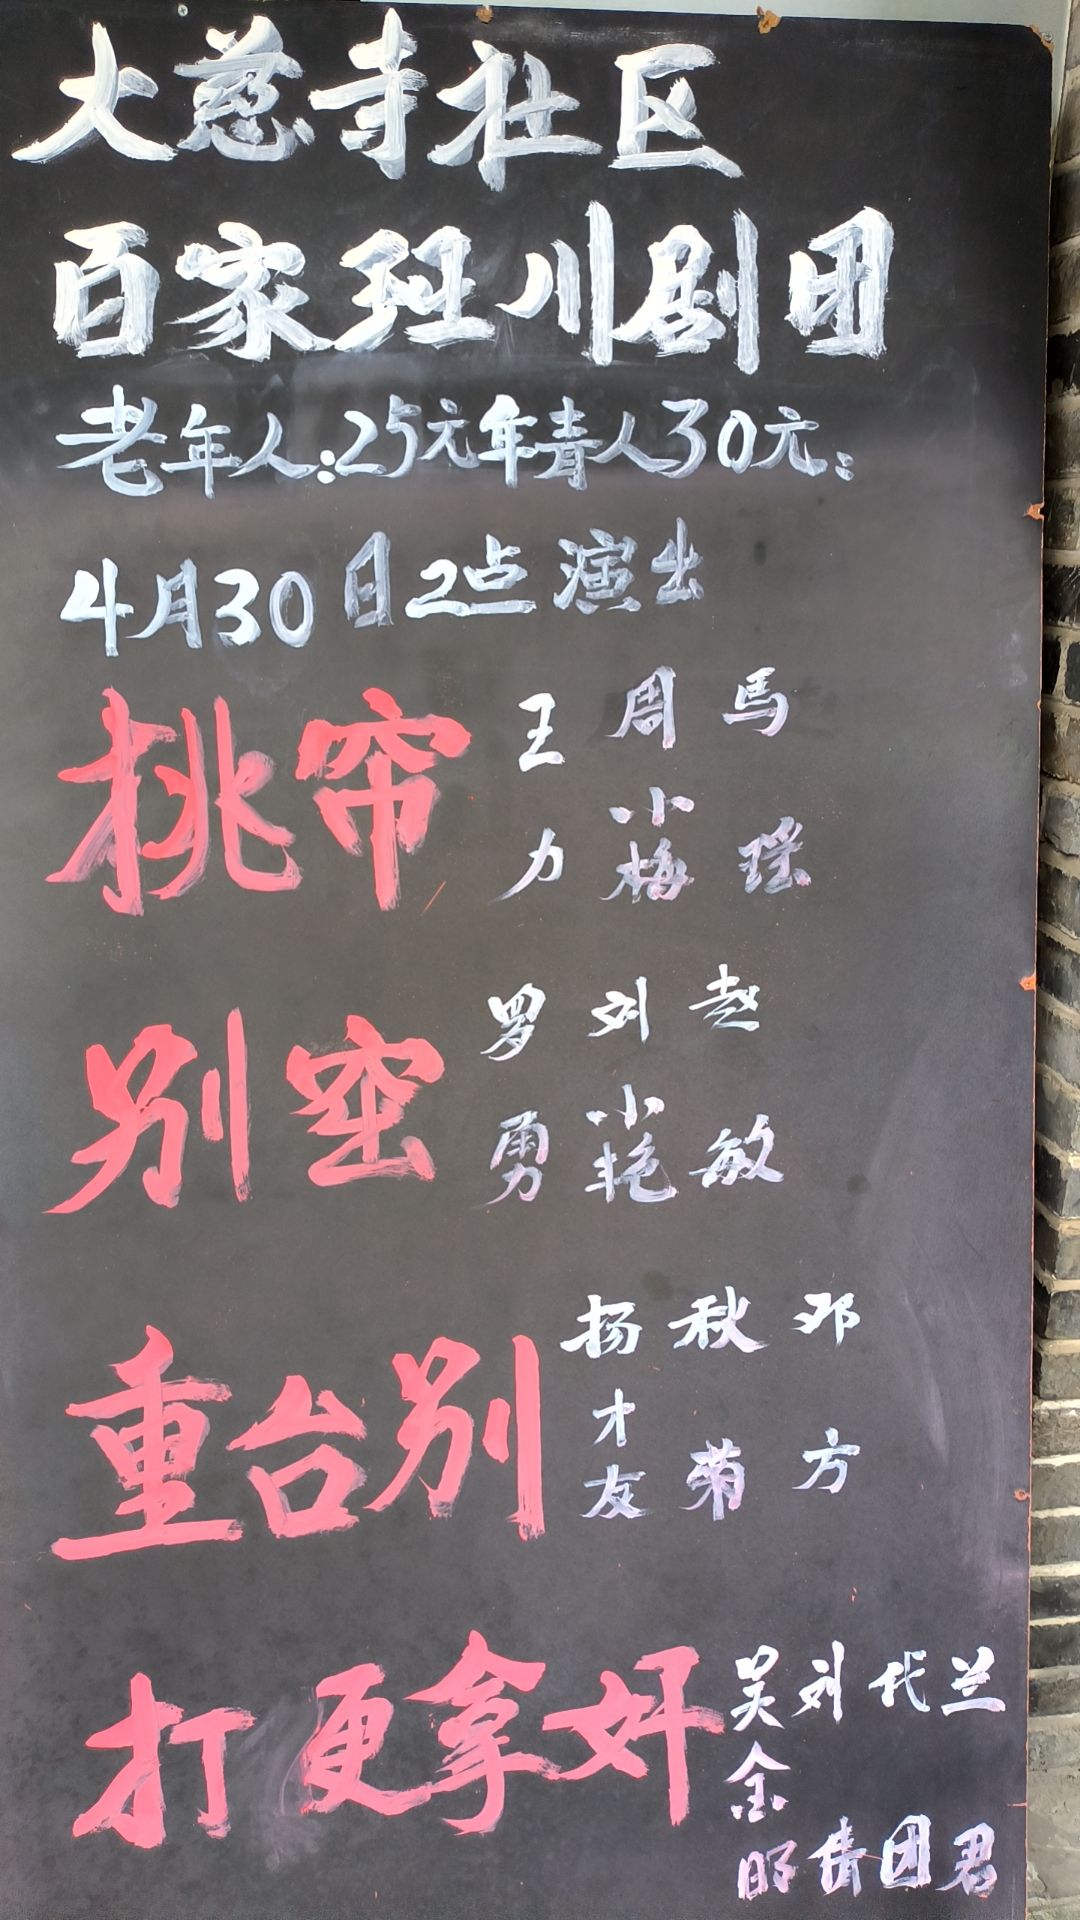 大慈寺社区
百家班川剧团
老年人:25元年青人30元:
4月30日2点演出
挑帘 王力 周小梅 马瑶
别窑 罗勇 刘小艳 赵敏
重台别 扬才友 秋菊 邓方
打更拿奸 吴金昭 刘倩 代团 兰君